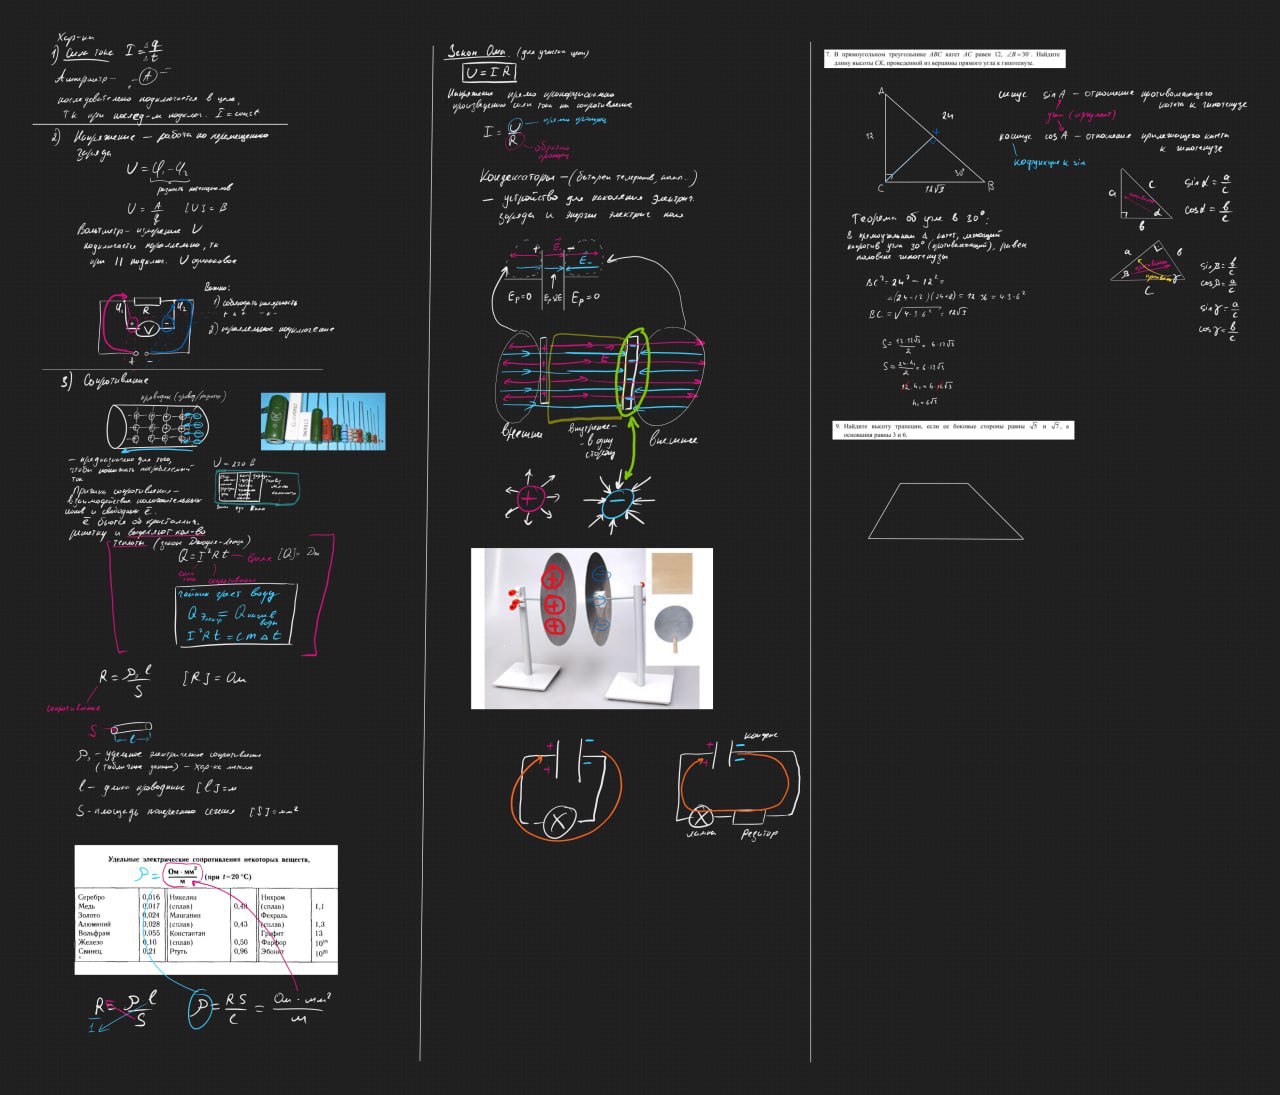 Хар-ки
1) Сила тока I = Δq/Δt
Амперметр – (A) –
последовательно подключается в цепь,
т.к при послед-м подключ. I = const
2) Напряжение – работа по перемещению
заряда
U = φ₁ – φ₂
разность потенциалов
U = A/q [U] = В
Вольтметр – измерение U
подключается параллельно, т.к
при || подключ. U одинаковое
Важно:
1) соблюдать полярность
2) параллельное подключение
φ₁ R φ₂
V
+ –
3) Сопротивление
– предназначено для того,
чтобы понижать потребляемый
ток
U = 220 В
Причина сопротивления –
взаимодействие положительных
ионов и свободных ē.
ē бьются об кристаллич.
решетку и выделяют кол-во
теплоты (закон Джоуля-Ленца)
Q = I²Rt – время [Q] = Дж
сила тока сопротивление
чайник греет воду
Q электр = Q нагрев воды
I²Rt = cmΔt
R = ρl/S [R] = Ом
сопротивление
S l
ρ, – удельное электрическое сопротивление
(табличные данные) – хар-ка металла
l – длина проводника [l] = м
S – площадь поперечного сечения [S] = мм²
Удельные электрические сопротивления некоторых веществ,
ρ = Ом · мм²/м (при t=20 °C)
Серебро 0,016 Никелин Нихром
Медь 0,017 (сплав) (сплав) 1,1
Золото 0,024 Манганин Фехраль
Алюминий 0,028 (сплав) 0,43 (сплав) 1,3
Вольфрам 0,055 Константан Графит 13
Железо 0,10 (сплав) 0,50 Фарфор 10¹⁹
Свинец 0,21 Ртуть 0,96 Эбонит 10²⁰
R/1 = ρl/S ρ = RS/l = Ом · мм²/м
Закон Ома (для участка цепи)
U = I R
Напряжение прямо пропорционально
произведению силы тока на сопротивление
I = U/R
прямо пропорц
обратно пропорц
Конденсаторы – (батареи телефонов, комп..)
– устройство для накопления электрич.
заряда и энергии электрич поля
+ E₊ – E₋
Eр=0 Eр=0
E
внешние внутренне – в одну сторону внешние
+ –
+ –
+ –
X
+ –
конденс
X
лампа резистор
7. В прямоугольном треугольнике ABC катет AC равен 12, ∠B = 30°. Найдите
длину высоты CK, проведенной из вершины прямого угла к гипотенузе.
A
24
12
30°
C 12√3 B
синус sin A – отношение противолежащего
катета к гипотенузе
угол (аргумент)
косинус cos A – отношение прилежащего катета
к гипотенузе
кофункция к sin
a c α b
sin α = a/c
cos α = b/c
a b β γ c
sin β = b/c
cos β = a/c
sin γ = a/c
cos γ = b/c
Теорема об угле в 30°:
в прямоугольном Δ катет, лежащий
напротив угла 30° (противолежащий), равен
половине гипотенузы
BC² = 24² – 12² =
= (24–12)(24+12) = 12·36 = 4·3·6²
BC = √4·3·6² = 12√3
S = 12·12√3/2 = 6·12√3
S = 24·h/2 = 6·12√3
12·h = 6·12√3
h = 6√3
9. Найдите высоту трапеции, если ее боковые стороны равны √5 и √7, а
основания равны 3 и 6.